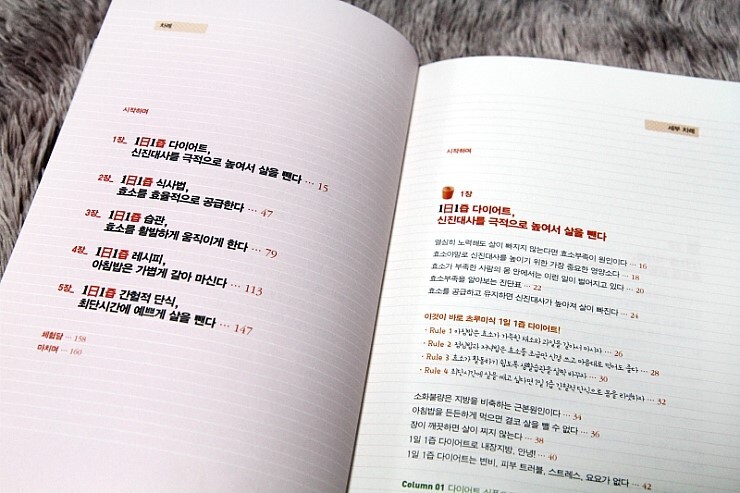 차례
시작하며
1장_ 1日1즙 다이어트,
신진대사를 극적으로 높여서 살을 뺀다 ··· 15
2장_ 1日1즙 식사법,
효소를 효율적으로 공급한다 ··· 47
3장_ 1日1즙 습관,
효소를 활발하게 움직이게 한다 ··· 79
4장_ 1日1즙 레시피,
아침밥은 가볍게 갈아 마신다 ··· 113
5장_ 1日1즙 간헐적 단식,
최단시간에 예쁘게 살을 뺀다 ··· 147
체험담 ··· 158
마치며 ··· 160
세부 차례
시작하며
1장
1日1즙 다이어트,
신진대사를 극적으로 높여서 살을 뺀다
열심히 노력해도 살이 빠지지 않는다면 효소부족이 원인이다 ··· 16
효소야말로 신진대사를 높이기 위한 가장 중요한 영양소다 ··· 18
효소가 부족한 사람의 몸 안에서는 이런 일이 벌어지고 있다 ··· 20
효소부족을 알아보는 진단표 ··· 22
효소를 공급하고 유지하면 신진대사가 높아져 살이 빠진다 ··· 24
이것이 바로 츠루미식 1일 1즙 다이어트!
· Rule 1 아침밥은 효소가 가득한 채소와 과일을 갈아서 마시자 ··· 26
· Rule 2 점심밥과 저녁밥은 효소를 조금만 신경 쓰고 마음대로 먹어도 좋다 ··· 28
· Rule 3 효소가 활동하기 쉽도록 생활습관을 살짝 바꾸자 ··· 30
· Rule 4 최단시간에 살을 빼고 싶다면 1일 1즙 간헐적 단식으로 몸을 리셋하자 ··· 32
소화불량은 지방을 비축하는 근본원인이다 ··· 34
아침밥을 든든하게 먹으면 결코 살을 뺄 수 없다 ··· 36
장이 깨끗하면 살이 찌지 않는다 ··· 38
1일 1즙 다이어트로 내장지방, 안녕! ··· 40
1일 1즙 다이어트에는 변비, 피부 트러블, 스트레스, 요요가 없다 ··· 42
Column 01 다이어트